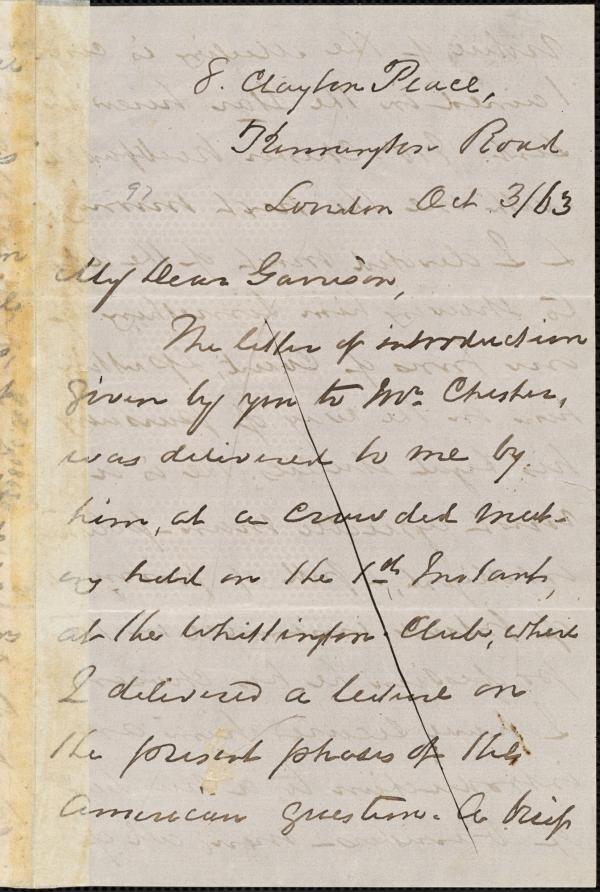 8. Clayton Place,
Kennington Road
London Oct 3/63
My Dear Garrison,
The letter of introduction
given by you to Mr. Chester,
was delivered to me by
him, at a crowded meet-
ing held on the 1st Instant,
at the Whittington Club, where
I delivered a lecture on
the present phases of the
American question. A brief